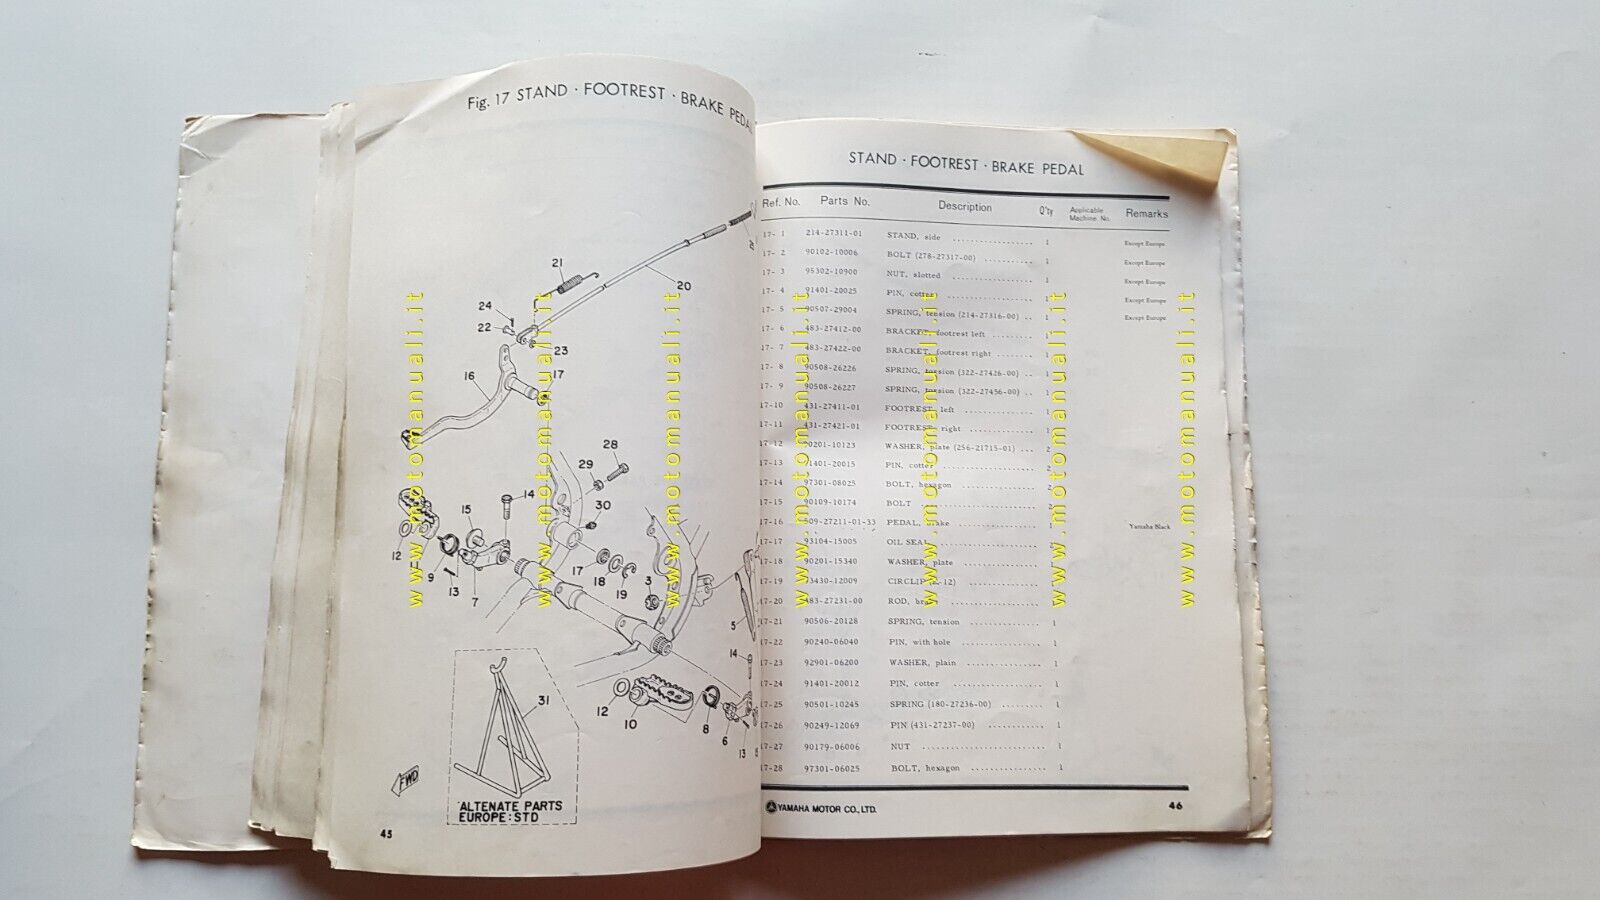 Fig. 17 STAND · FOOTREST · BRAKE PEDAL
21
20
24
22
23
16
17
28
29
14
15
30
12
9
13
7
17
18
19
3
5
14
12
10
8
6
13
31
FWD
ALTENATE PARTS
EUROPE:STD
45
STAND · FOOTREST · BRAKE PEDAL
Ref. No. Parts No. Description Q'ty Applicable Machine No. Remarks
17- 1 214-27311-01 STAND, side .................. 1 Except Europe
17- 2 90102-10006 BOLT (278-27317-00) ............ 1 Except Europe
17- 3 95302-10900 NUT, slotted .................. 1 Except Europe
17- 4 91401-20025 PIN, cotter 1 Except Europe
17- 5 90507-29004 SPRING, tension (214-27316-00) .. 1 Except Europe
17- 6 483-27412-00 BRACKET, footrest left ......... 1
17- 7 483-27422-00 BRACKET, footrest right ........ 1
17- 8 90508-26226 SPRING, torsion (322-27426-00) .. 1
17- 9 90508-26227 SPRING, torsion (322-27456-00) .. 1
17-10 431-27411-01 FOOTREST, left ............... 1
17-11 431-27421-01 FOOTREST, right ............... 1
17-12 90201-10123 WASHER, plate (256-21715-01) ... 2
17-13 91401-20015 PIN, cotter 2
17-14 97301-08025 BOLT, hexagon 2
17-15 90109-10174 BOLT 2
17-16 509-27211-01-33 PEDAL, brake 1 Yamaha Black
17-17 93104-15005 OIL SEAL 1
17-18 90201-15340 WASHER, plate 1
17-19 93430-12009 CIRCLIP 1
17-20 483-27231-00 ROD, 1
17-21 90506-20128 SPRING, tension 1
17-22 90240-06040 PIN, with hole ............... 1
17-23 92901-06200 WASHER, plain ............... 1
17-24 91401-20012 PIN, cotter .................. 1
17-25 90501-10245 SPRING (180-27236-00) ......... 1
17-26 90249-12069 PIN (431-27237-00) ............ 1
17-27 90179-06006 NUT ..................... 1
17-28 97301-06025 BOLT, hexagon ............... 1
YAMAHA MOTOR CO., LTD.
46
www.motomanuali.it
www.motomanuali.it
www.motomanuali.it
www.motomanuali.it
www.motomanuali.it
www.motomanuali.it
www.motomanuali.it